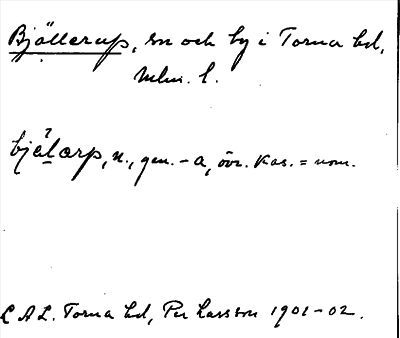 Bjällerup, sn och by i Torna hd,
Mlm. l.
bjä̀l̠arp, n., gen. -a, övr. kas. = nom.
L A L. Torna hd, Per Larsson 1901-02.